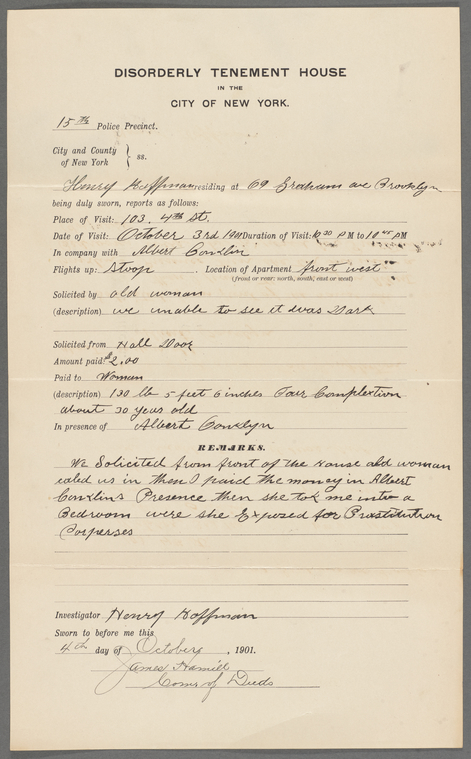 DISORDERLY TENEMENT HOUSE
IN THE
CITY OF NEW YORK.
15th Police Precinct.
City and County
of New York } ss.
Henry Hoffman residing at 69 Graham ave Brooklyn
being duly sworn, reports as follows:
Place of Visit: 103. 4th St,
Date of Visit: October 3rd 1901 Duration of Visit: 10 30 P M to 10 45 P M
In company with Albert Conklin
Flights up: Stoop . Location of Apartment front west
(front or rear: north, south, east or west)
Solicited by old woman
(description) we unable to see it was Dark
Solicited from Hall Door
Amount paid: $2.00
Paid to Woman
(description) 130 lb 5 feet 6 inches Fair Complextion
about 30 year old
In presence of Albert Conklyn
REMARKS.
We Solicited from front of the House old woman
called us in then I paid the money in Albert
Conklins Presence then she tok me into a
Bedroom were she Exposed for Prostitution
Porperses
Investigator Henry Hoffman
Sworn to before me this
4th day of October , 1901.
James Hamill
Comr of Deeds